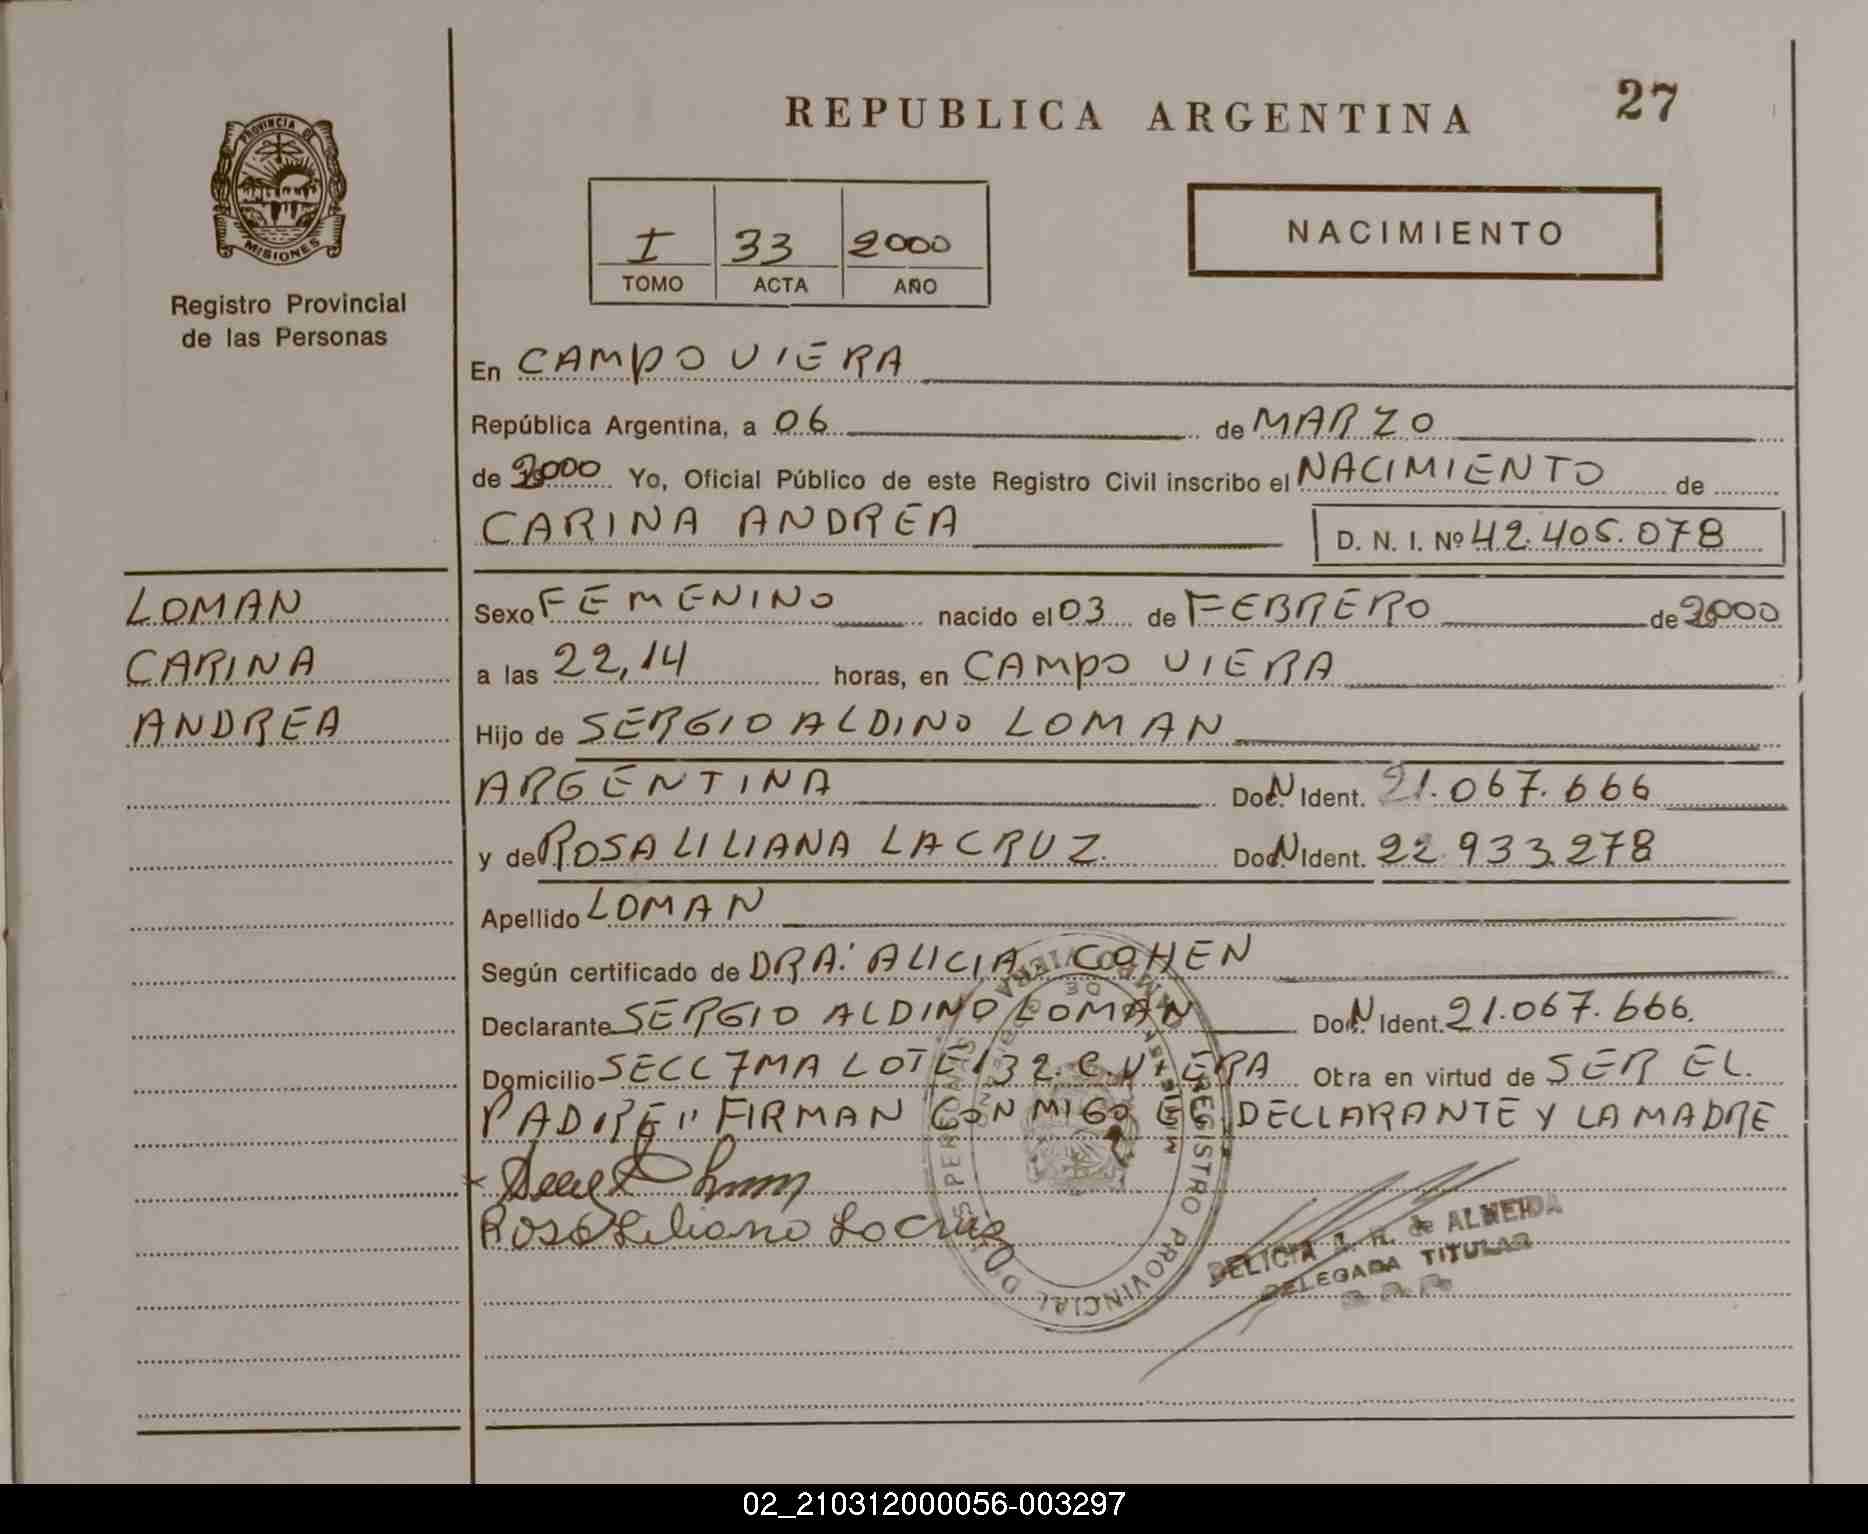 REPUBLICA ARGENTINA
27
PROVINCIA DE
MISIONES
Registro Provincial
de las Personas
I 33 2000
TOMO ACTA AÑO
NACIMIENTO
En CAMPO VIERA
República Argentina, a 06 de MARZO
de 2000 Yo, Oficial Público de este Registro Civil inscribo el NACIMIENTO de
CARINA ANDREA D. N. I. Nº 42.405.078
LOMAN
CARINA
ANDREA
Sexo FEMENINO nacido el 03 de FEBRERO de 2000
a las 22,14 horas, en CAMPO VIERA
Hijo de SERGIO ALDINO LOMAN
ARGENTINA Doc. N Ident. 21.067.666
y de ROSA LILIANA LACRUZ. Doc. N Ident. 22.933.278
Apellido LOMAN
Según certificado de DRA: ALICIA COHEN
Declarante SERGIO ALDINO LOMAN Doc. N Ident. 21.067.666.
Domicilio SECC 7MA LOTE 132. C. VIERA Otra en virtud de SER EL.
PADRE" FIRMAN CONMIGO EL DECLARANTE Y LA MADRE
Rosa Liliana Lacruz
REGISTRO PROVINCIAL DE LAS PERSONAS
CAMPO VIERA
DELICIA de ALMEIDA
DELEGADA TITULAR
02_210312000056-003297